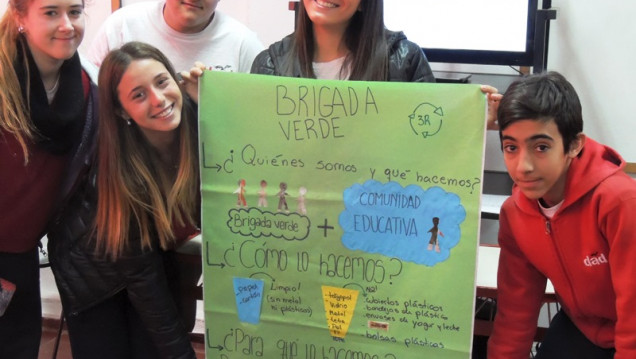 BRIGADA
VERDE
3R
¿Quiénes somos y qué hacemos?
Brigada verde
+
COMUNIDAD
EDUCATIVA
¿Cómo lo hacemos?
Papel
Limpio!
(sin metal
ni plástico)
telgopor
Vidrio
Metal
•bidones plásticos
bandejas de plástico
envases de yogur y leche
•bolsas plásticas
¿Para qué lo hacemos?
dad